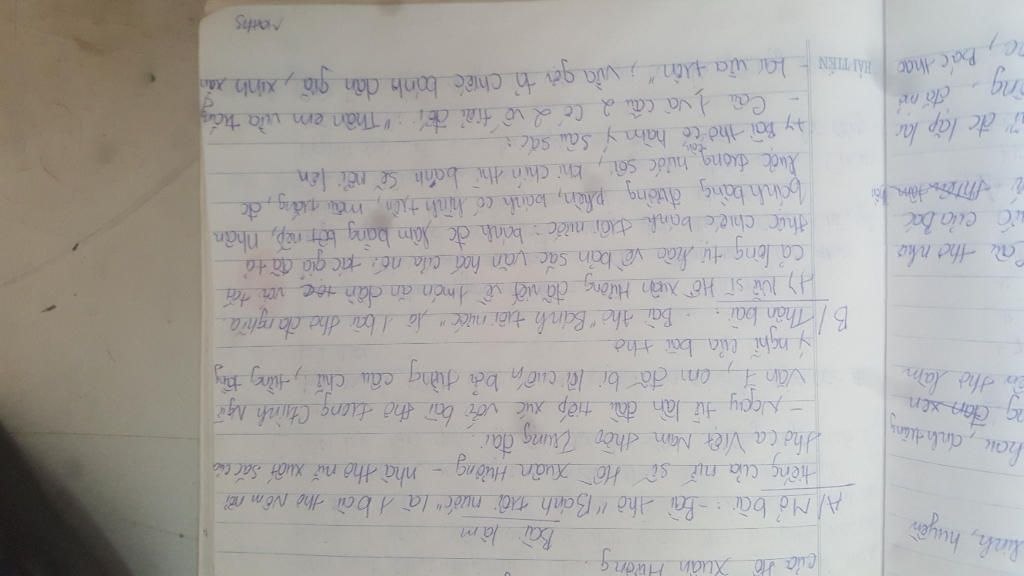 của Hồ Xuân Hương.
Bài làm
A/ Mở bài: - Bài thơ "Bánh trôi nước" là 1 bài thơ Nôm nổi
tiếng của nữ sĩ Hồ Xuân Hương - nhà thơ nữ xuất sắc của
thơ ca Việt Nam thời Trung đại.
- Ngay từ lần đầu tiếp xúc với bài thơ trong Chình Ngữ
văn 7, em đã bị lôi cuốn bởi từng câu chữ, từng tầng
ý nghĩ của bài thơ
B/ Thân bài: . Bài thơ "Bánh trôi nước" là 1 bài thơ đa nghĩa.
+) Nữ sĩ Hồ Xuân Hương đã viết về 1 món ăn dân tộc với tất
cả lòng tự hào về bản sắc văn hoá của nó: tác giả đã tả
thực chiếc bánh trôi nước: bánh đc làm bằng bột nếp, nhân
bánh bằng đường phèn, bánh có hình tròn, màu trắng, đc
luộc trong nước sôi, khi chín thì bánh sẽ nổi lên
+) Bài thơ có hàm ý sâu sắc:
- Câu 1 và câu 2 có 2 vế tiểu đối: "Thân em vừa trắng
- lại vừa tròn"; vừa gợi tả chiếc bánh dân giã, xinh xắn
HẢI TIẾN
linh, huyền
hau, anh trăng
ng đan xen
ên thơ làm
câu thơ như
úc của Bác
đc lặp lại
ông, đã mở
Bác thao